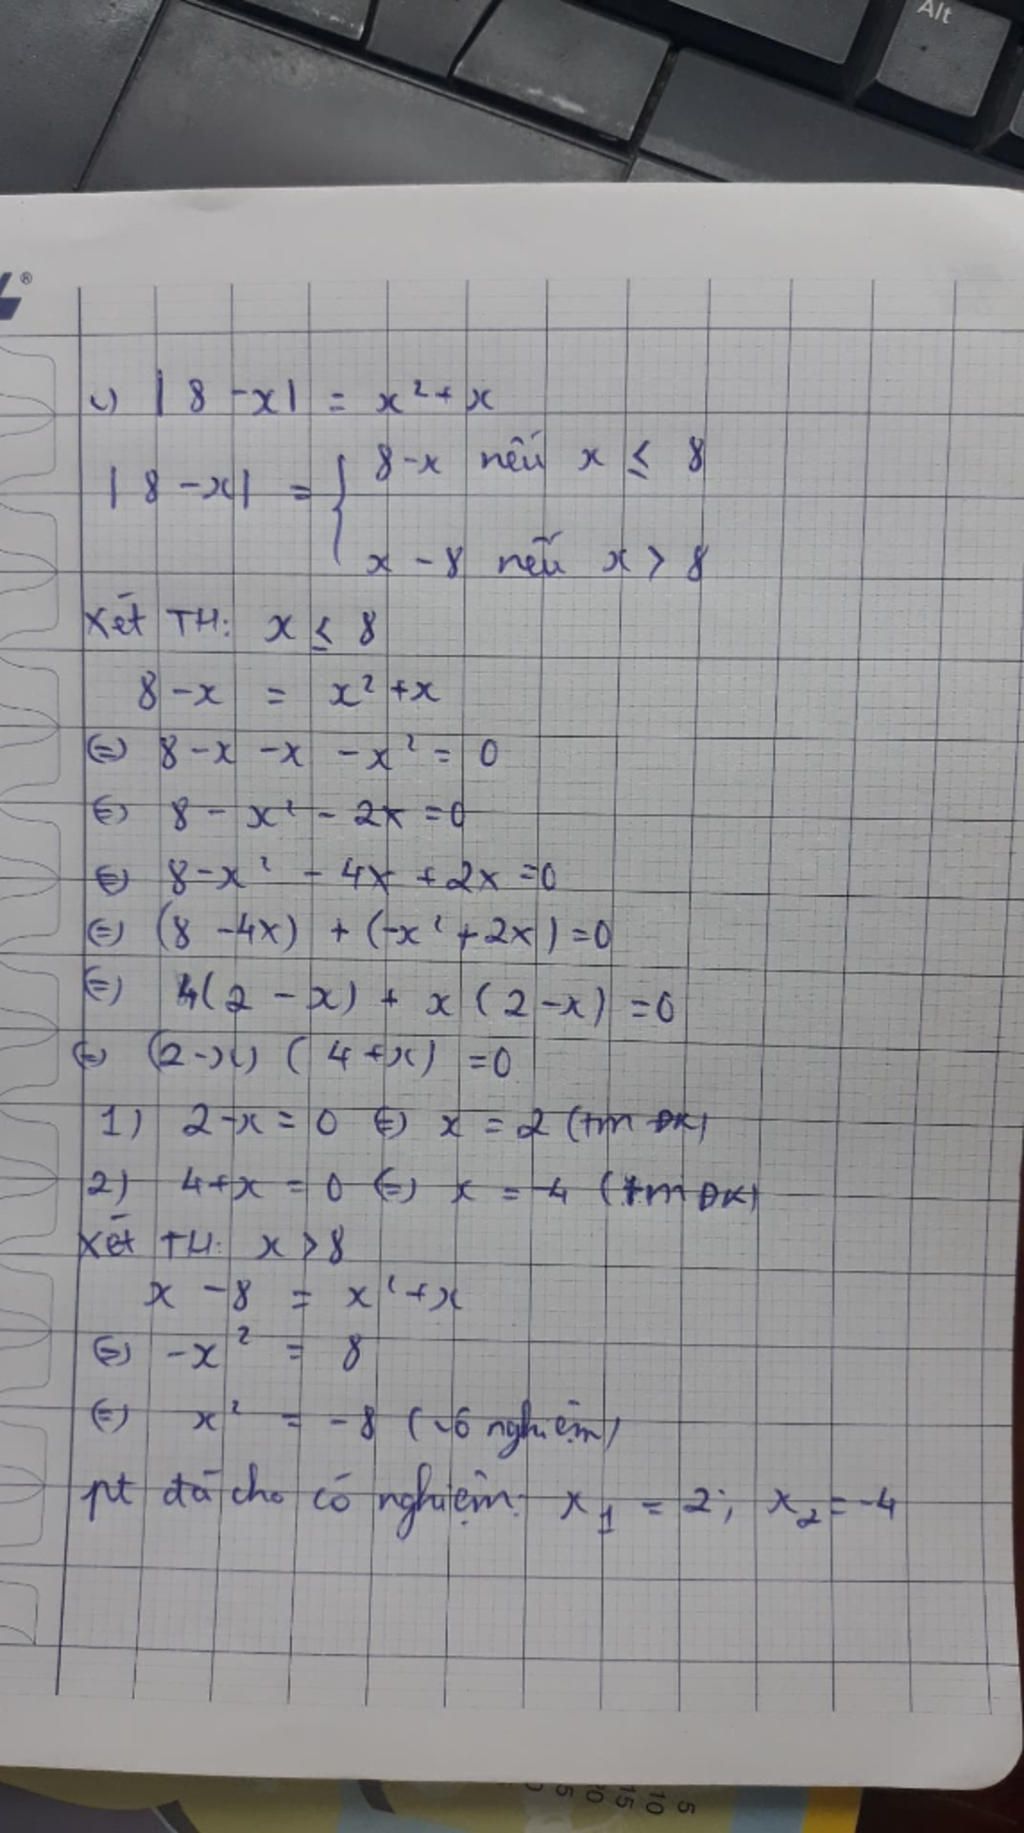 Alt
®
c) |8 - x| = x² + x
|8 - x| = { 8 - x nếu x ≤ 8
x - 8 nếu x > 8
Xét TH: x ≤ 8
8 - x = x² + x
(=) 8 - x - x - x² = 0
(=) 8 - x² - 2x = 0
(=) 8 - x² - 4x + 2x = 0
(=) (8 - 4x) + (-x² + 2x) = 0
(=) 4(2 - x) + x(2 - x) = 0
(=) (2 - x)(4 + x) = 0
1) 2 - x = 0 (=) x = 2 (tm ĐK)
2) 4 + x = 0 (=) x = -4 (tm ĐK)
Xét TH: x > 8
x - 8 = x² + x
(=) -x² = 8
(=) x² = -8 (vô nghiệm)
pt đã cho có nghiệm: x₁ = 2; x₂ = -4
5
10
15
20